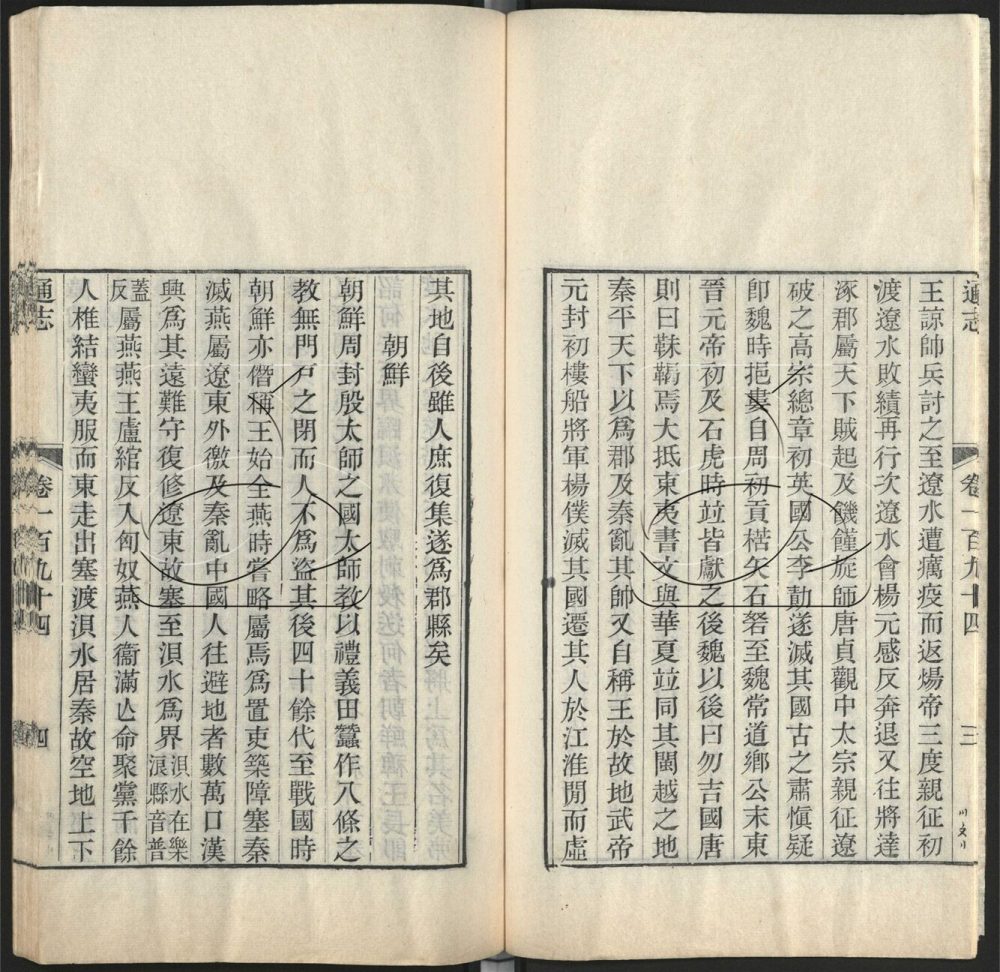 通志
卷一百九十四
三
王諒帥兵討之至遼水遭癘疫而返煬帝三度親征初
渡遼水敗績再行次遼水會楊元感反奔退又往將達
涿郡屬天下賊起及饑饉旋師唐貞觀中太宗親征遼
破之高宗總章初英國公李勣遂滅其國古之肅愼疑
卽魏時挹婁自周初貢楛矢石砮至魏常道鄉公末東
晉元帝初及石虎時竝皆獻之後魏以後曰勿吉國唐
則曰靺鞨焉大抵東夷書文與華夏竝同其閩越之地
秦平天下以爲郡及秦亂其帥又自稱王於故地武帝
元封初樓船將軍楊僕滅其國遷其人於江淮閒而虛
其地自後雖人庶復集遂爲郡縣矣
朝鮮
朝鮮周封殷太師之國太師教以禮義田蠶作八條之
教無門戸之閉而人不爲盜其後四十餘代至戰國時
朝鮮亦僭稱王始全燕時嘗略屬焉爲置吏築障塞秦
滅燕屬遼東外徼及秦亂中國人往避地者數萬口漢
興爲其遠難守復修遼東故塞至浿水爲界浿水在樂浪縣音普
蓋反屬燕燕王盧綰反入匈奴燕人衞滿亾命聚黨千餘
人椎結蠻夷服而東走出塞渡浿水居秦故空地上下
通志
卷一百九十四
四